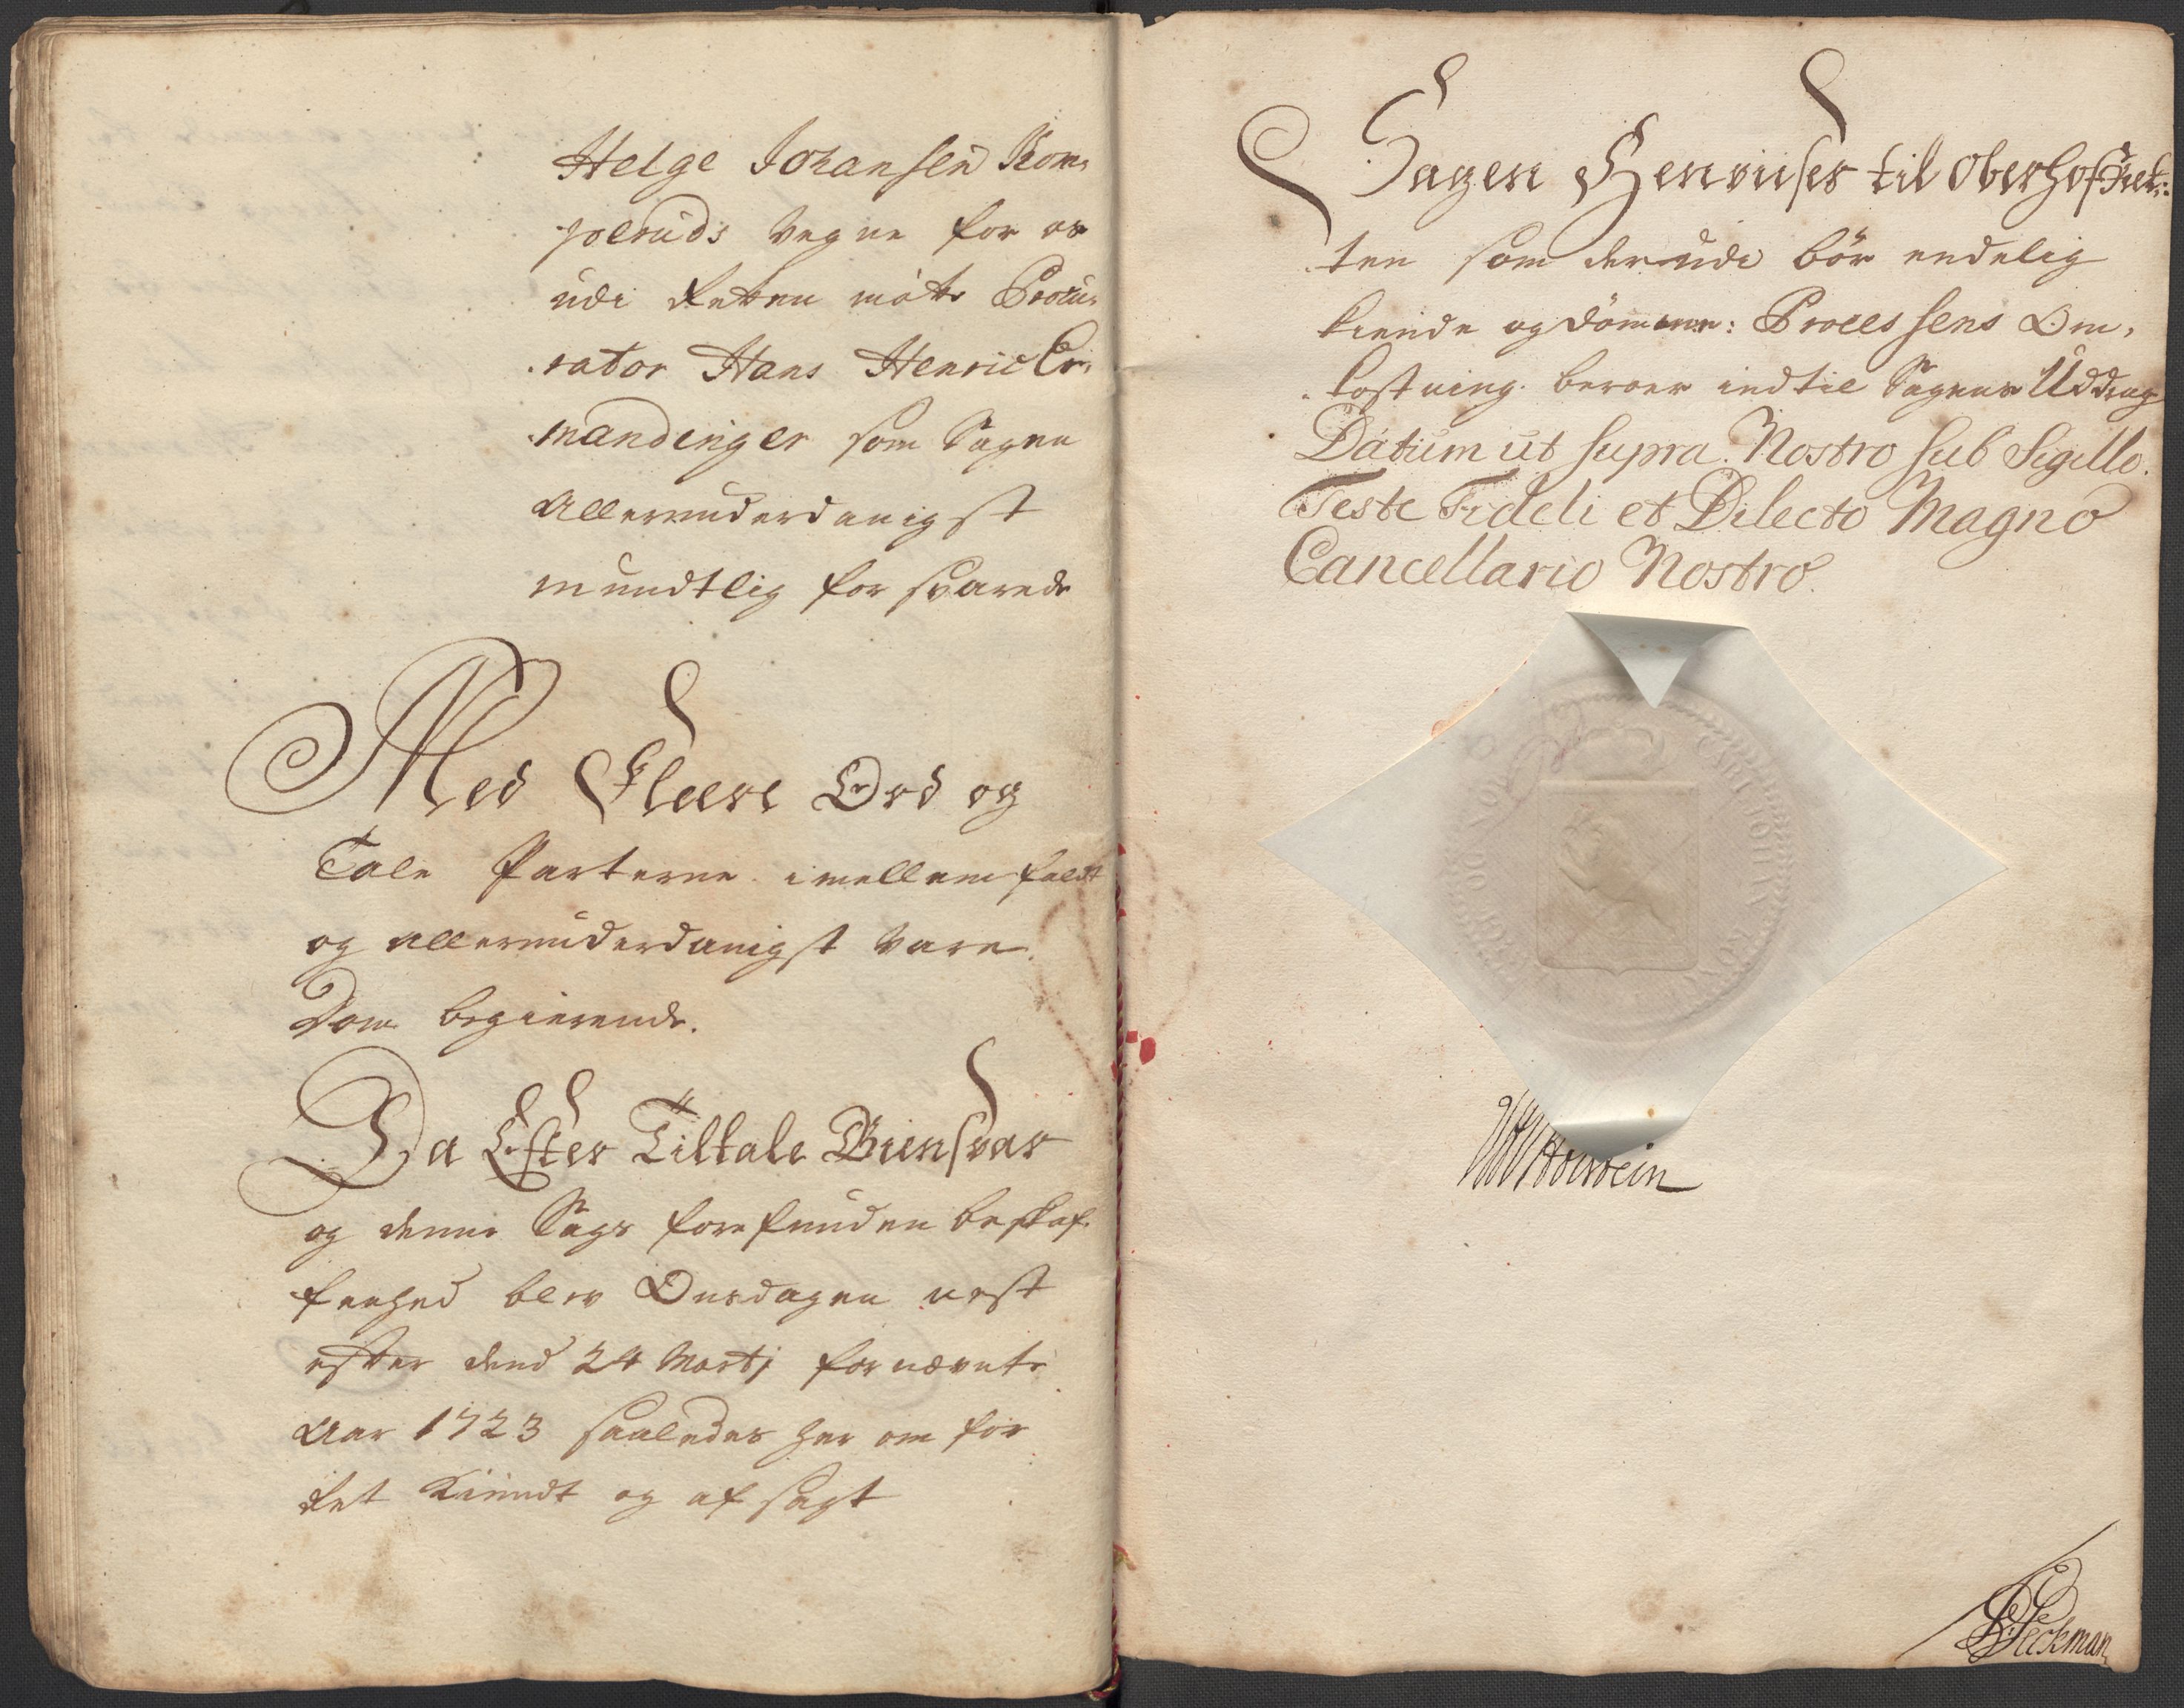 Helge Johansen Rom,
poeruds vegne for os
udi Retten mötte Procu,
rator Hans Henric Er,
mandinger som Sagen
allerunderdanigst
mundtlig for svarede
Med Fleere Ord og
Tale Parterne imellem faldt
og allerunderdanigst vare
Dom begierende.
Da Efter Tiltale Giensvar
og denne Sags forefunden beskaf,
fenhed blev Onsdagen nest
efter dend 24 Martj fornævnte
Aar 1723 saaledes her om for
Ret Kiendt og af sagt
Sagen Henviises til OberhofRet:
ten som derudi bör endelig
kiende og dömme: Processens Om,
kostning beroer indtil Sagens Uddrag
Datum ut supra. Nostro sub Sigillo.
Teste Fideli et Dilecto Magno
Cancellario Nostro.
Holstein
Peckman